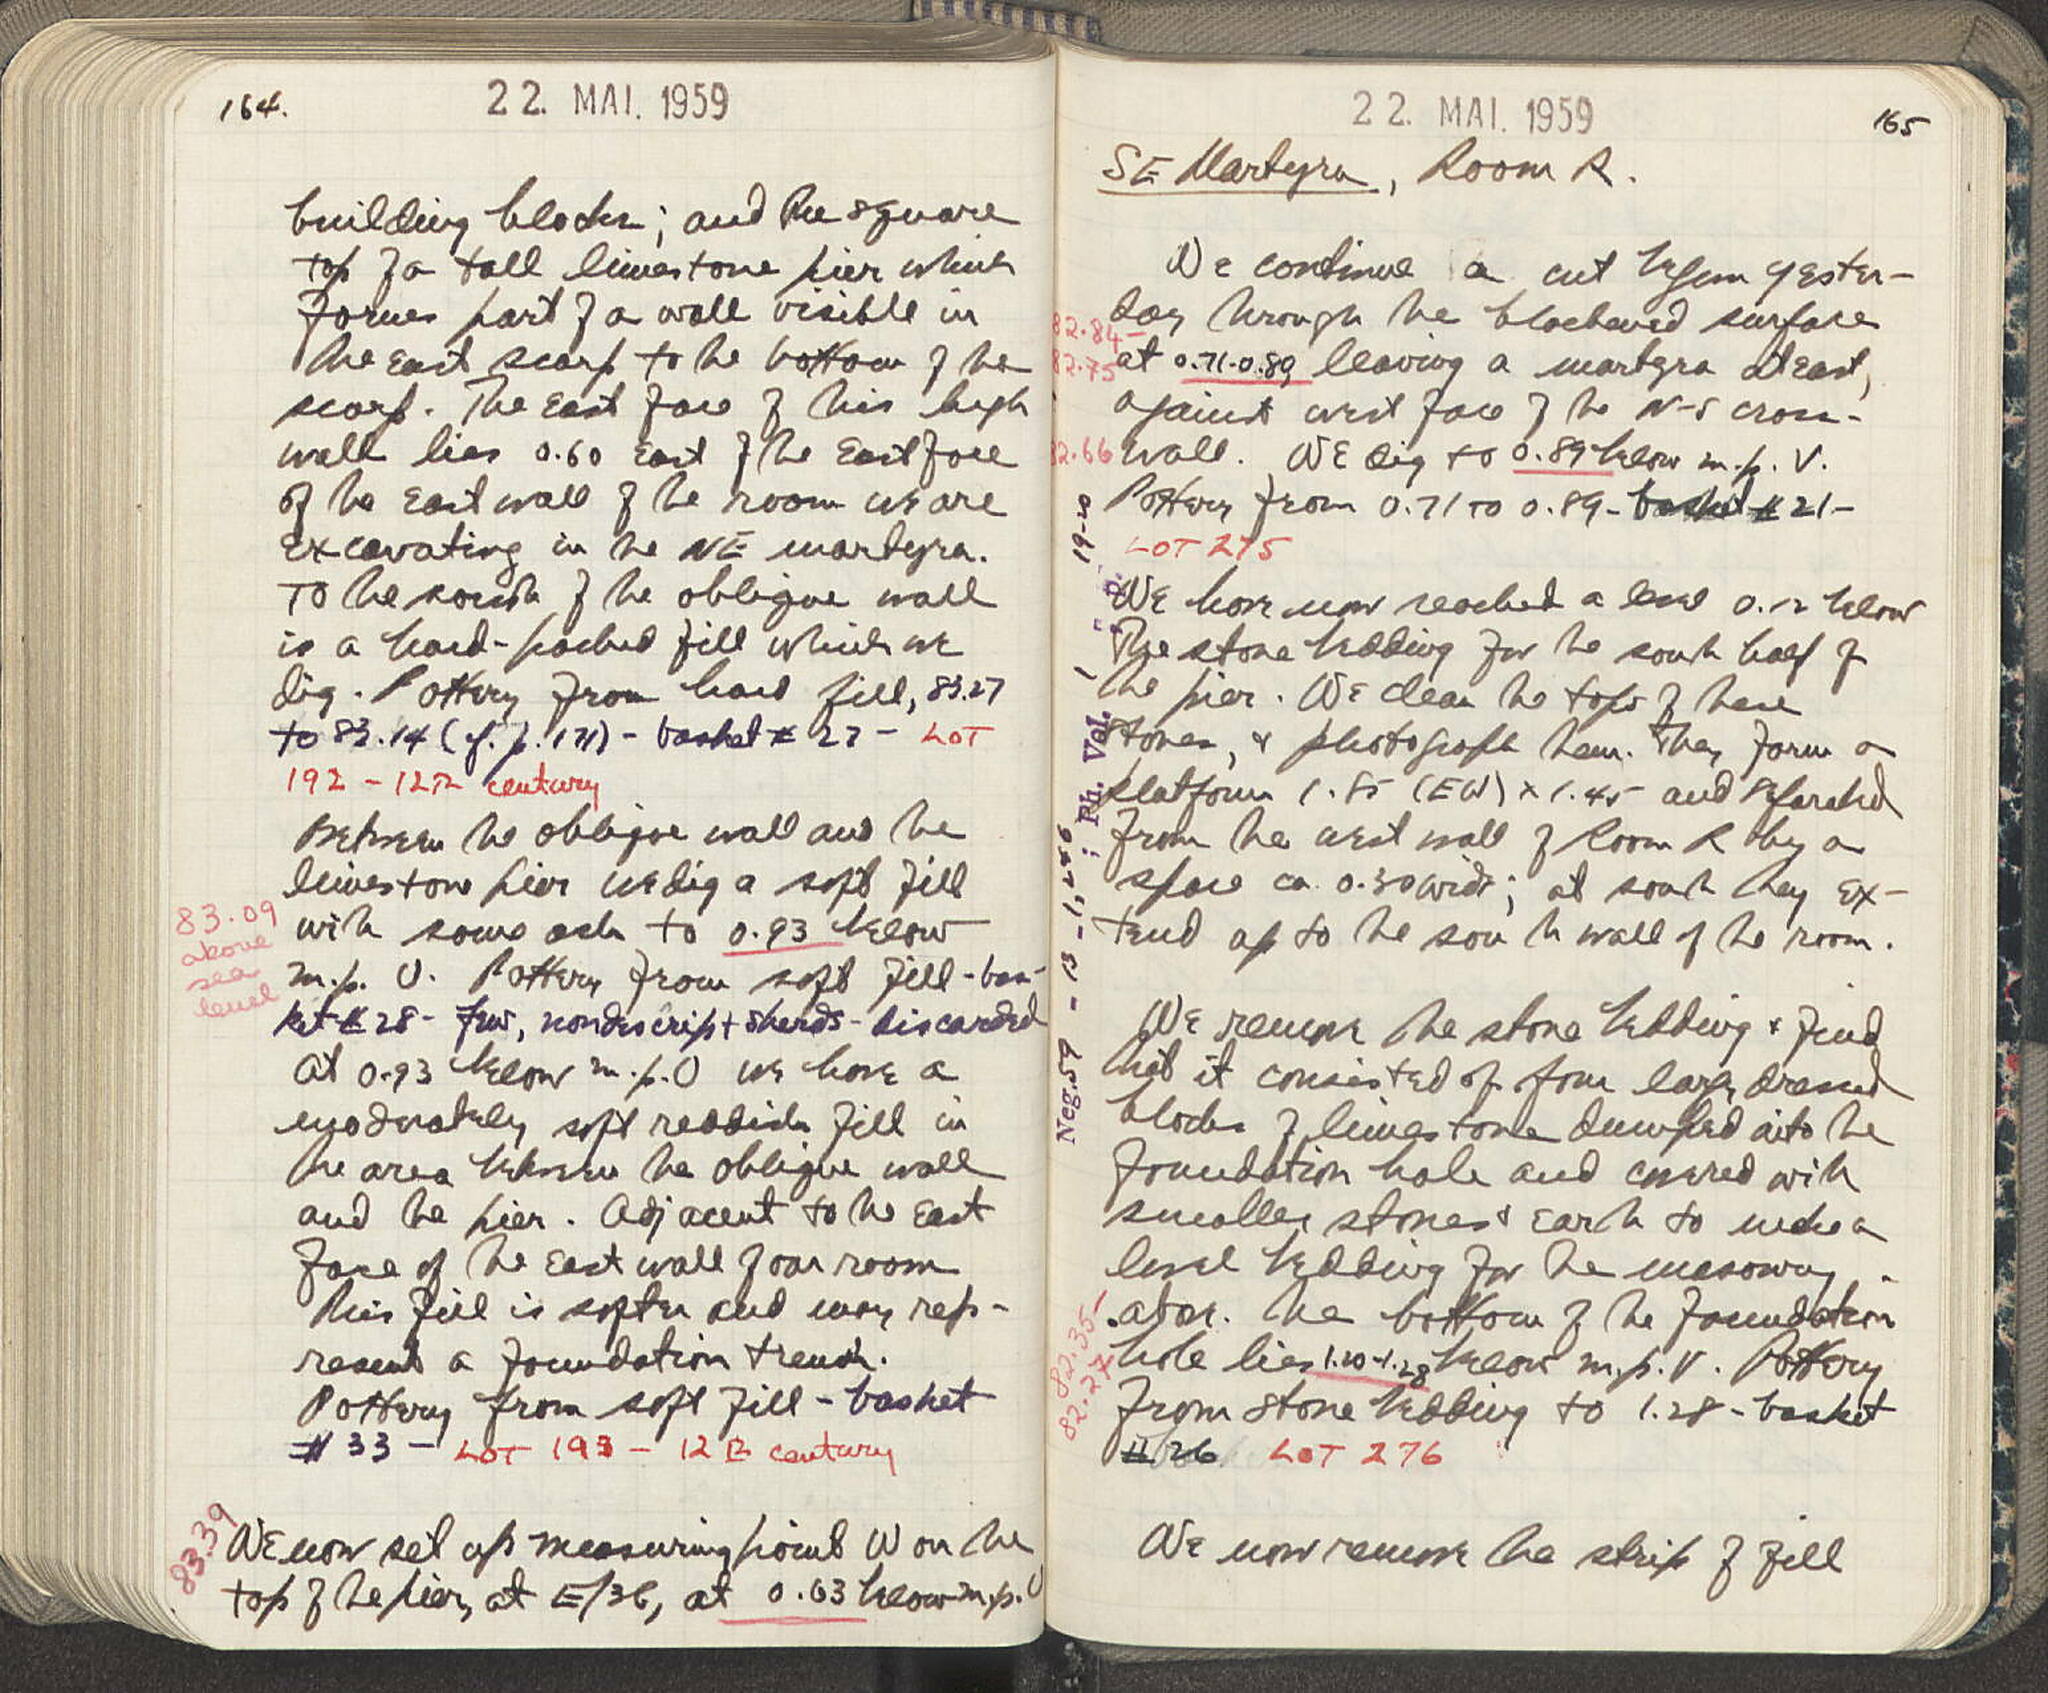 164.
22. MAI. 1959
building blocks; and the square
top of a tall limestone pier which
forms part of a wall visible in
the east scarp to the bottom of the
scarp. The East face of this high
wall lies 0.60 East of the East face
of the East wall of the room we are
excavating in the NE martyra.
To the south of the oblique wall
is a hard-packed fill which we
dig. Pottery from hard fill, 83.27
to 83.14 (cf. p. 171) - basket # 27 - LOT
192 - 12th century
Between the oblique wall and the
limestone pier we dig a soft fill
with some ash to 0.93 below
m.p. U. Pottery from soft fill - bas-
ket # 28 - few, nondescript sherds - discarded
83.09
above
sea
level
At 0.93 below m.p. U we have a
moderately soft reddish fill in
the area between the oblique wall
and the pier. Adjacent to the East
face of the East wall of our room
this fill is softer and may rep-
resent a foundation trench.
Pottery from soft fill - basket
# 33 - LOT 193 - 12th century
83.39
We now set up measuring point W on the
top of the pier, at E/36, at 0.63 below m.p. U
22. MAI. 1959
165
SE Martyra, Room R.
We continue a cut begun yester-
day through the blackened surface
82.84-
82.75
at 0.71-0.80 leaving a martyra at East,
against west face of the N-S cross-
82.66
wall. We dig to 0.89 below m.p. V.
Pottery from 0.71 to 0.89 - basket # 21 -
LOT 275
We have now reached a level 0.12 below
the stone bedding for the south half of
the pier. We clean the tops of these
stones, & photograph them. They form a
platform 1.85 (EW) x 1.45 and separated
from the west wall of Room R by a
space ca. 0.30 wide; at south they ex-
tend up to the south wall of the room.
Neg. 59 - 13 - 1, ; Ph. Vol. 1 p. 19-20
We remove the stone bedding & find
that it consisted of four large dressed
blocks of limestone dumped into the
foundation hole and covered with
smaller stones & earth to make a
level bedding for the masonry
above. The bottom of the foundation
82.35-
82.27
hole lies 1.20-1.28 below m.p. V. Pottery
from stone bedding to 1.28 - basket
# 26 LOT 276
We now remove the strip of fill